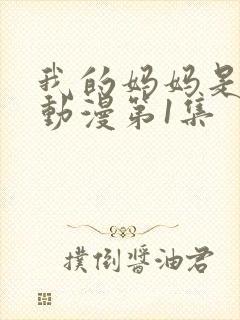 我的妈妈是
動漫第1集
撲倒醬油君